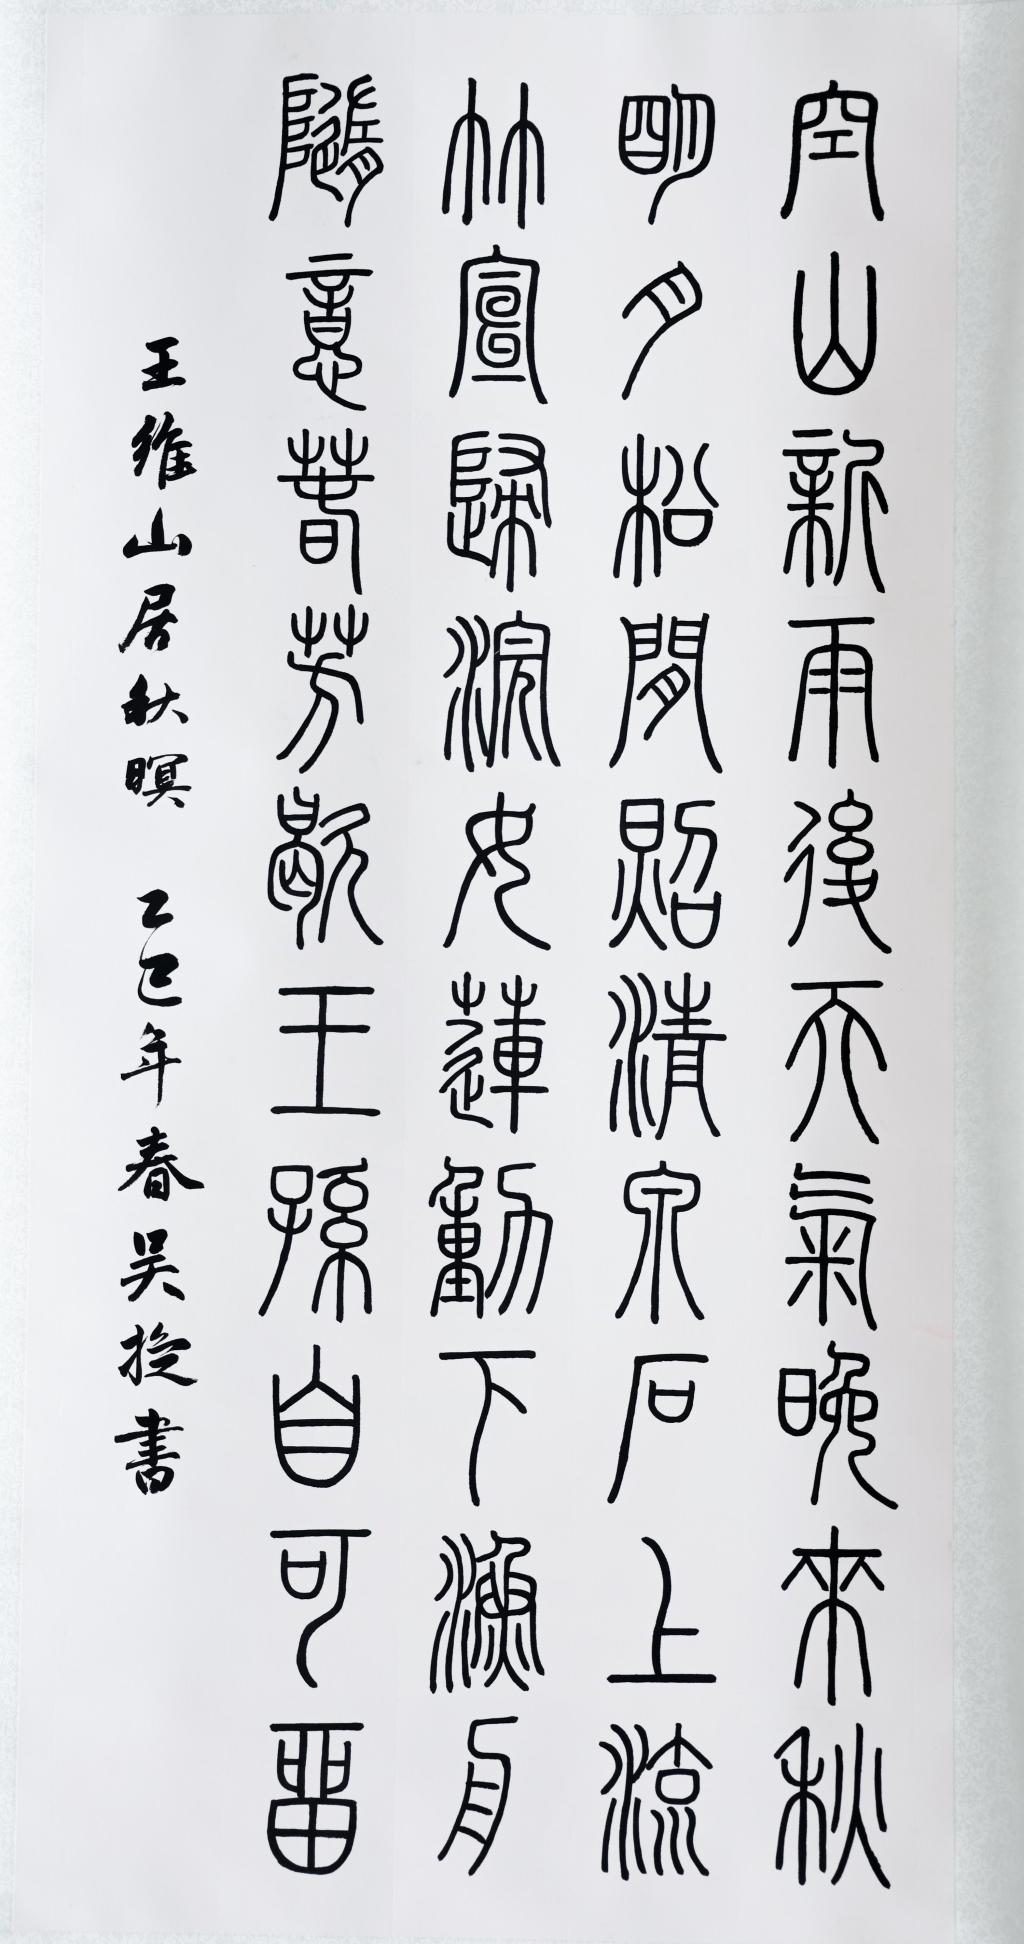 空山新雨後天氣晚來秋
明月松間照清泉石上流
竹宣歸浣女蓮動下漁舟
隨意春芳歇王孫自可留
王維山居秋暝 乙巳年春吴書